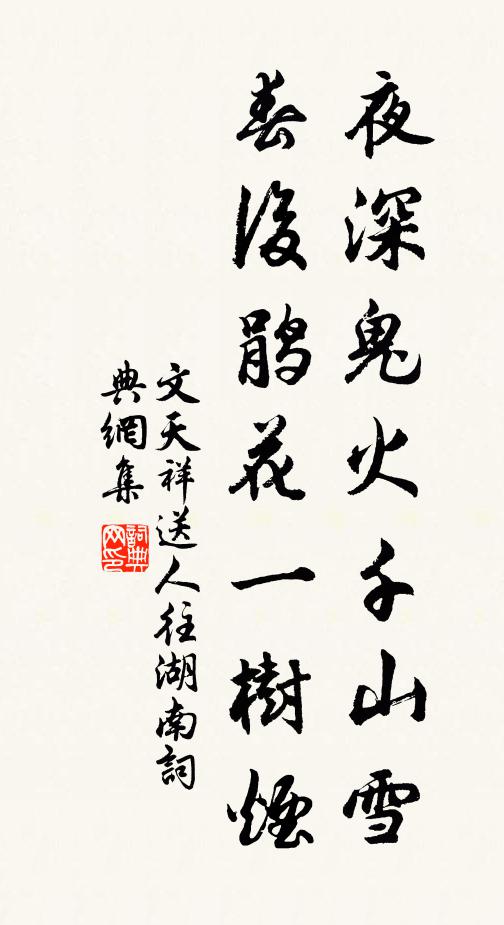 夜深鬼火千山雪
春後鵑花一樹煙
文天祥送人往湖南詞
典網集
詞典网印